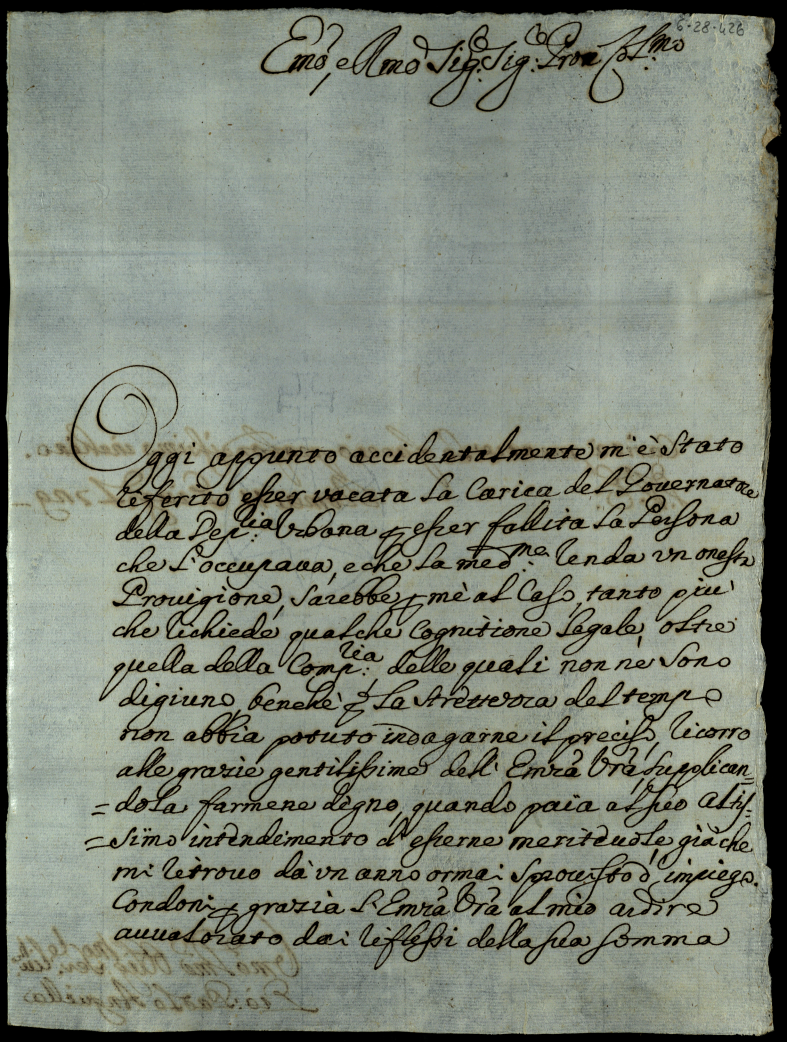 6-28-426
Emo, e Rmo Sig: Sig: Pron Colmo
Oggi appunto accidentalmente m'è stato
riferito esser vacata la Carica del Governatore
della Dep:ria Urbana p esser fallita la Persona
che l'occupava, e che la med:ma renda un onesta
Provigione, sarebbe p mè al Caso, tanto più
che richiede qualche Cognitione legale, oltre
quella della Comp:ria delle quali non ne sono
digiuno, benche p la strettezza del tempo
non abbia potuto indagarne il preciso, ricorro
alle grazie gentilissime dell' Emza Vra, supplican=
=dola farmene degno, quando paia al suo altis=
=simo intendimento d'esserne meritevole, già che
mi ritrovo dà un anno ormai sprovisto d'impiego.
Condoni p grazia l'Emza Vra al mio ardire
avvalorato dai riflessi della sua somma